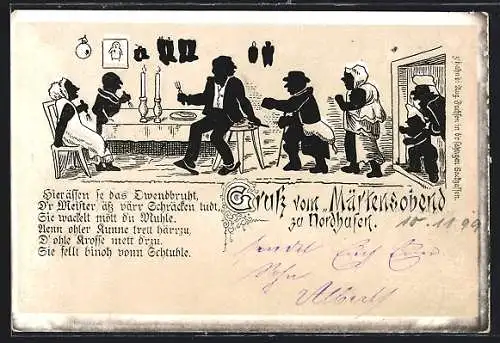 Hierässen se das Owendbruht,
D'r Meister äß värr Schräcken tudt,
Sie wackelt mött dn Muhle.
Nenn ohler Kunne trett härrzu,
D' ohle Krosse mett drzu.
Sie fellt binoh vonn Schtuhle.
Gruß vom Märtensobend
zu Nordhusen.
10.11.99
sendet Euch Euer
Sohn
Albert